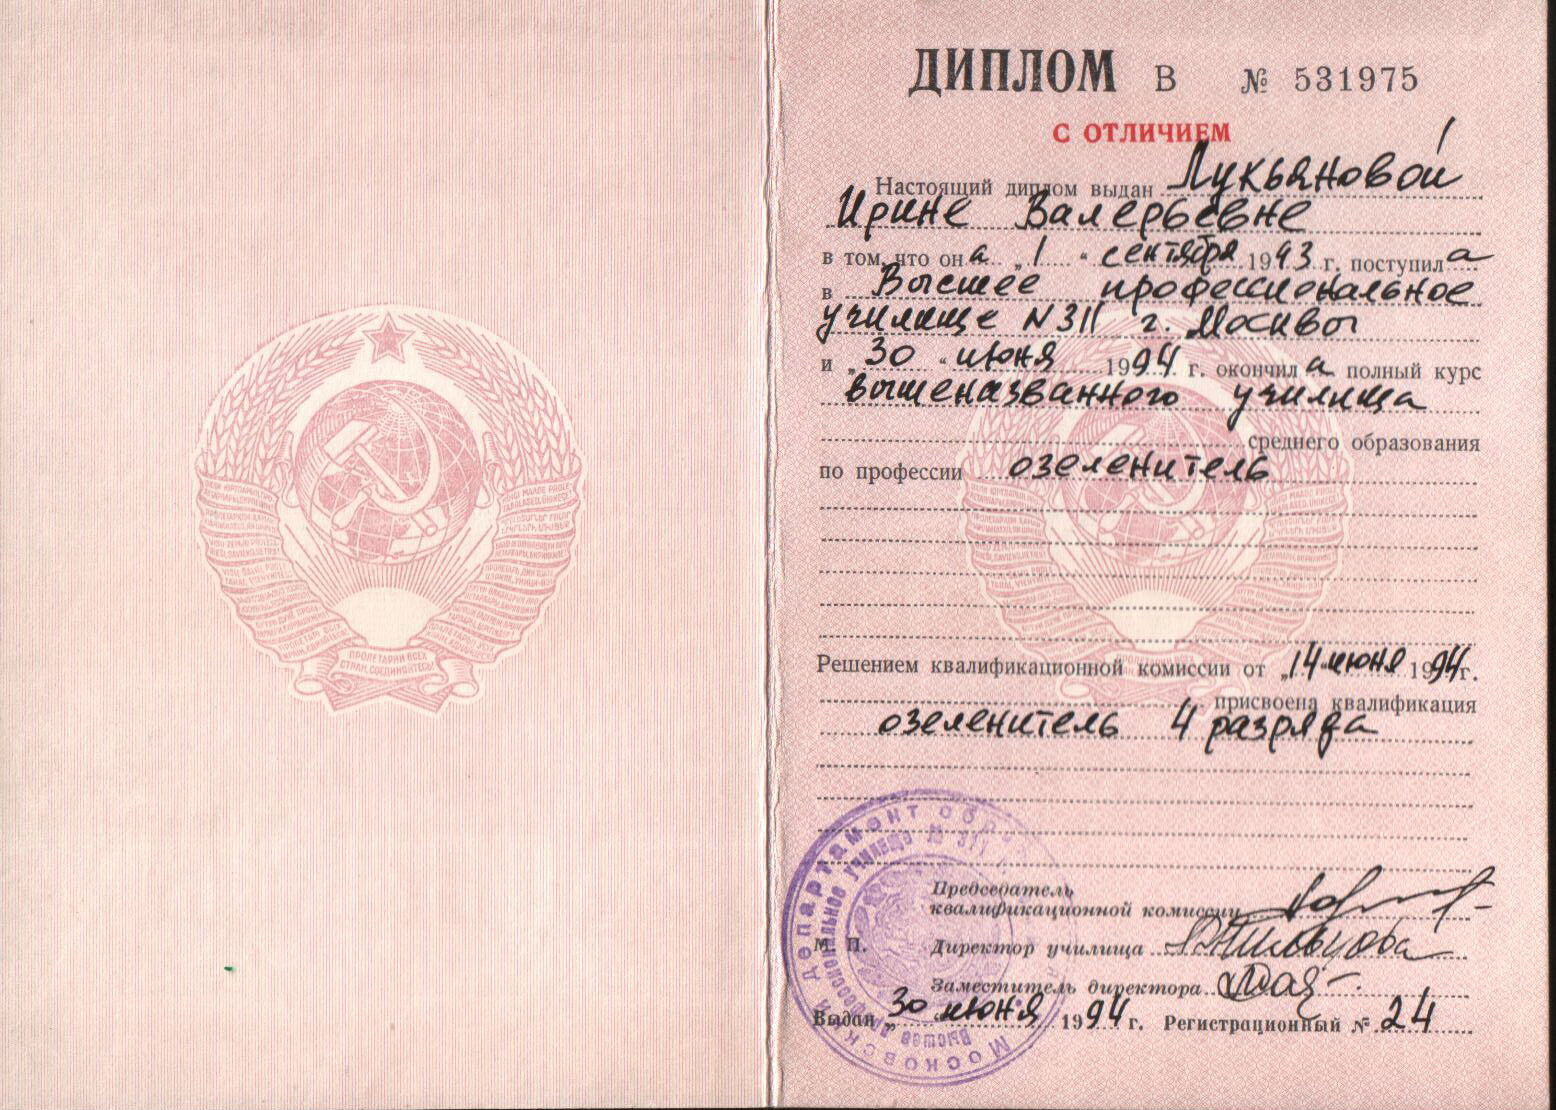 ПРОЛЕТАРИИ ВСЕХ
СТРАН, СОЕДИНЯЙТЕСЬ!
ДИПЛОМ В № 531975
С ОТЛИЧИЕМ
Настоящий диплом выдан Лукьяновой
Ирине Валерьевне
в том, что он а „ 1 " сентября 1993 г. поступил а
в Высшее профессиональное
училище N311 г. Москвы
и „ 30 " июня 1994 г. окончил а полный курс
вышеназванного училища
среднего образования
по профессии озеленитель
Решением квалификационной комиссии от „14" июня 1994 г.
присвоена квалификация
озеленитель 4 разряда
Председатель
квалификационной комиссии
М. П. Директор училища
Заместитель директора
Выдан „ 30 " июня 1994 г. Регистрационный № 24
Московский департамент
Высшее профессиональное училище № 311